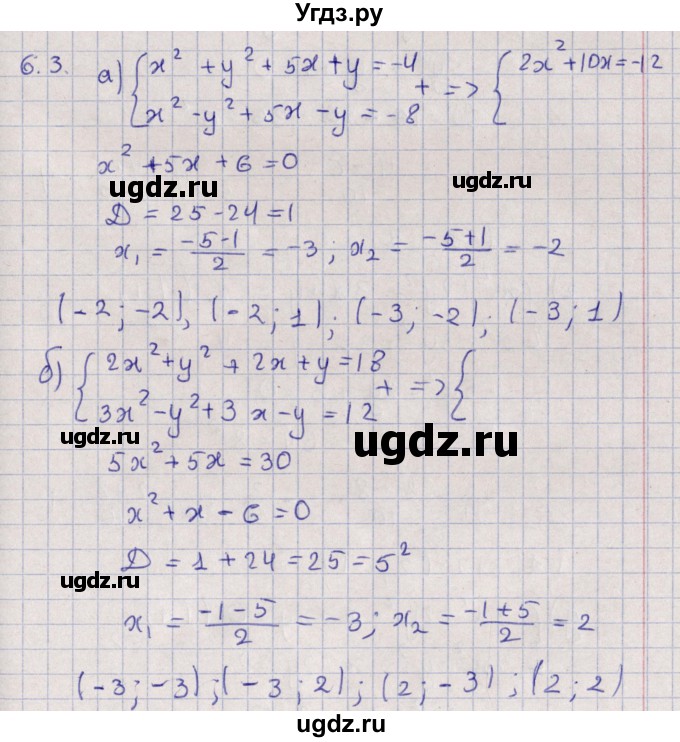 Угдз.ру
6.3. а) { x² + y² + 5x + y = -4 + => { 2x² + 10x = -12
x² - y² + 5x - y = -8
x² + 5x + 6 = 0
ugdz.ru ugdz.ru
Д = 25 - 24 = 1
x₁ = (-5-1)/2 = -3 ; x₂ = (-5+1)/2 = -2
(-2; -2), (-2; 1); (-3; -2); (-3; 1)
б) { 2x² + y² + 2x + y = 18 + => {
3x² - y² + 3x - y = 12
ugdz.ru ugdz.ru
5x² + 5x = 30
x² + x - 6 = 0
Д = 1 + 24 = 25 = 5²
ugdz.ru ugdz.ru
x₁ = (-1-5)/2 = -3 ; x₂ = (-1+5)/2 = 2
(-3; -3); (-3; 2); (2; -3); (2; 2)
ugdz.ru